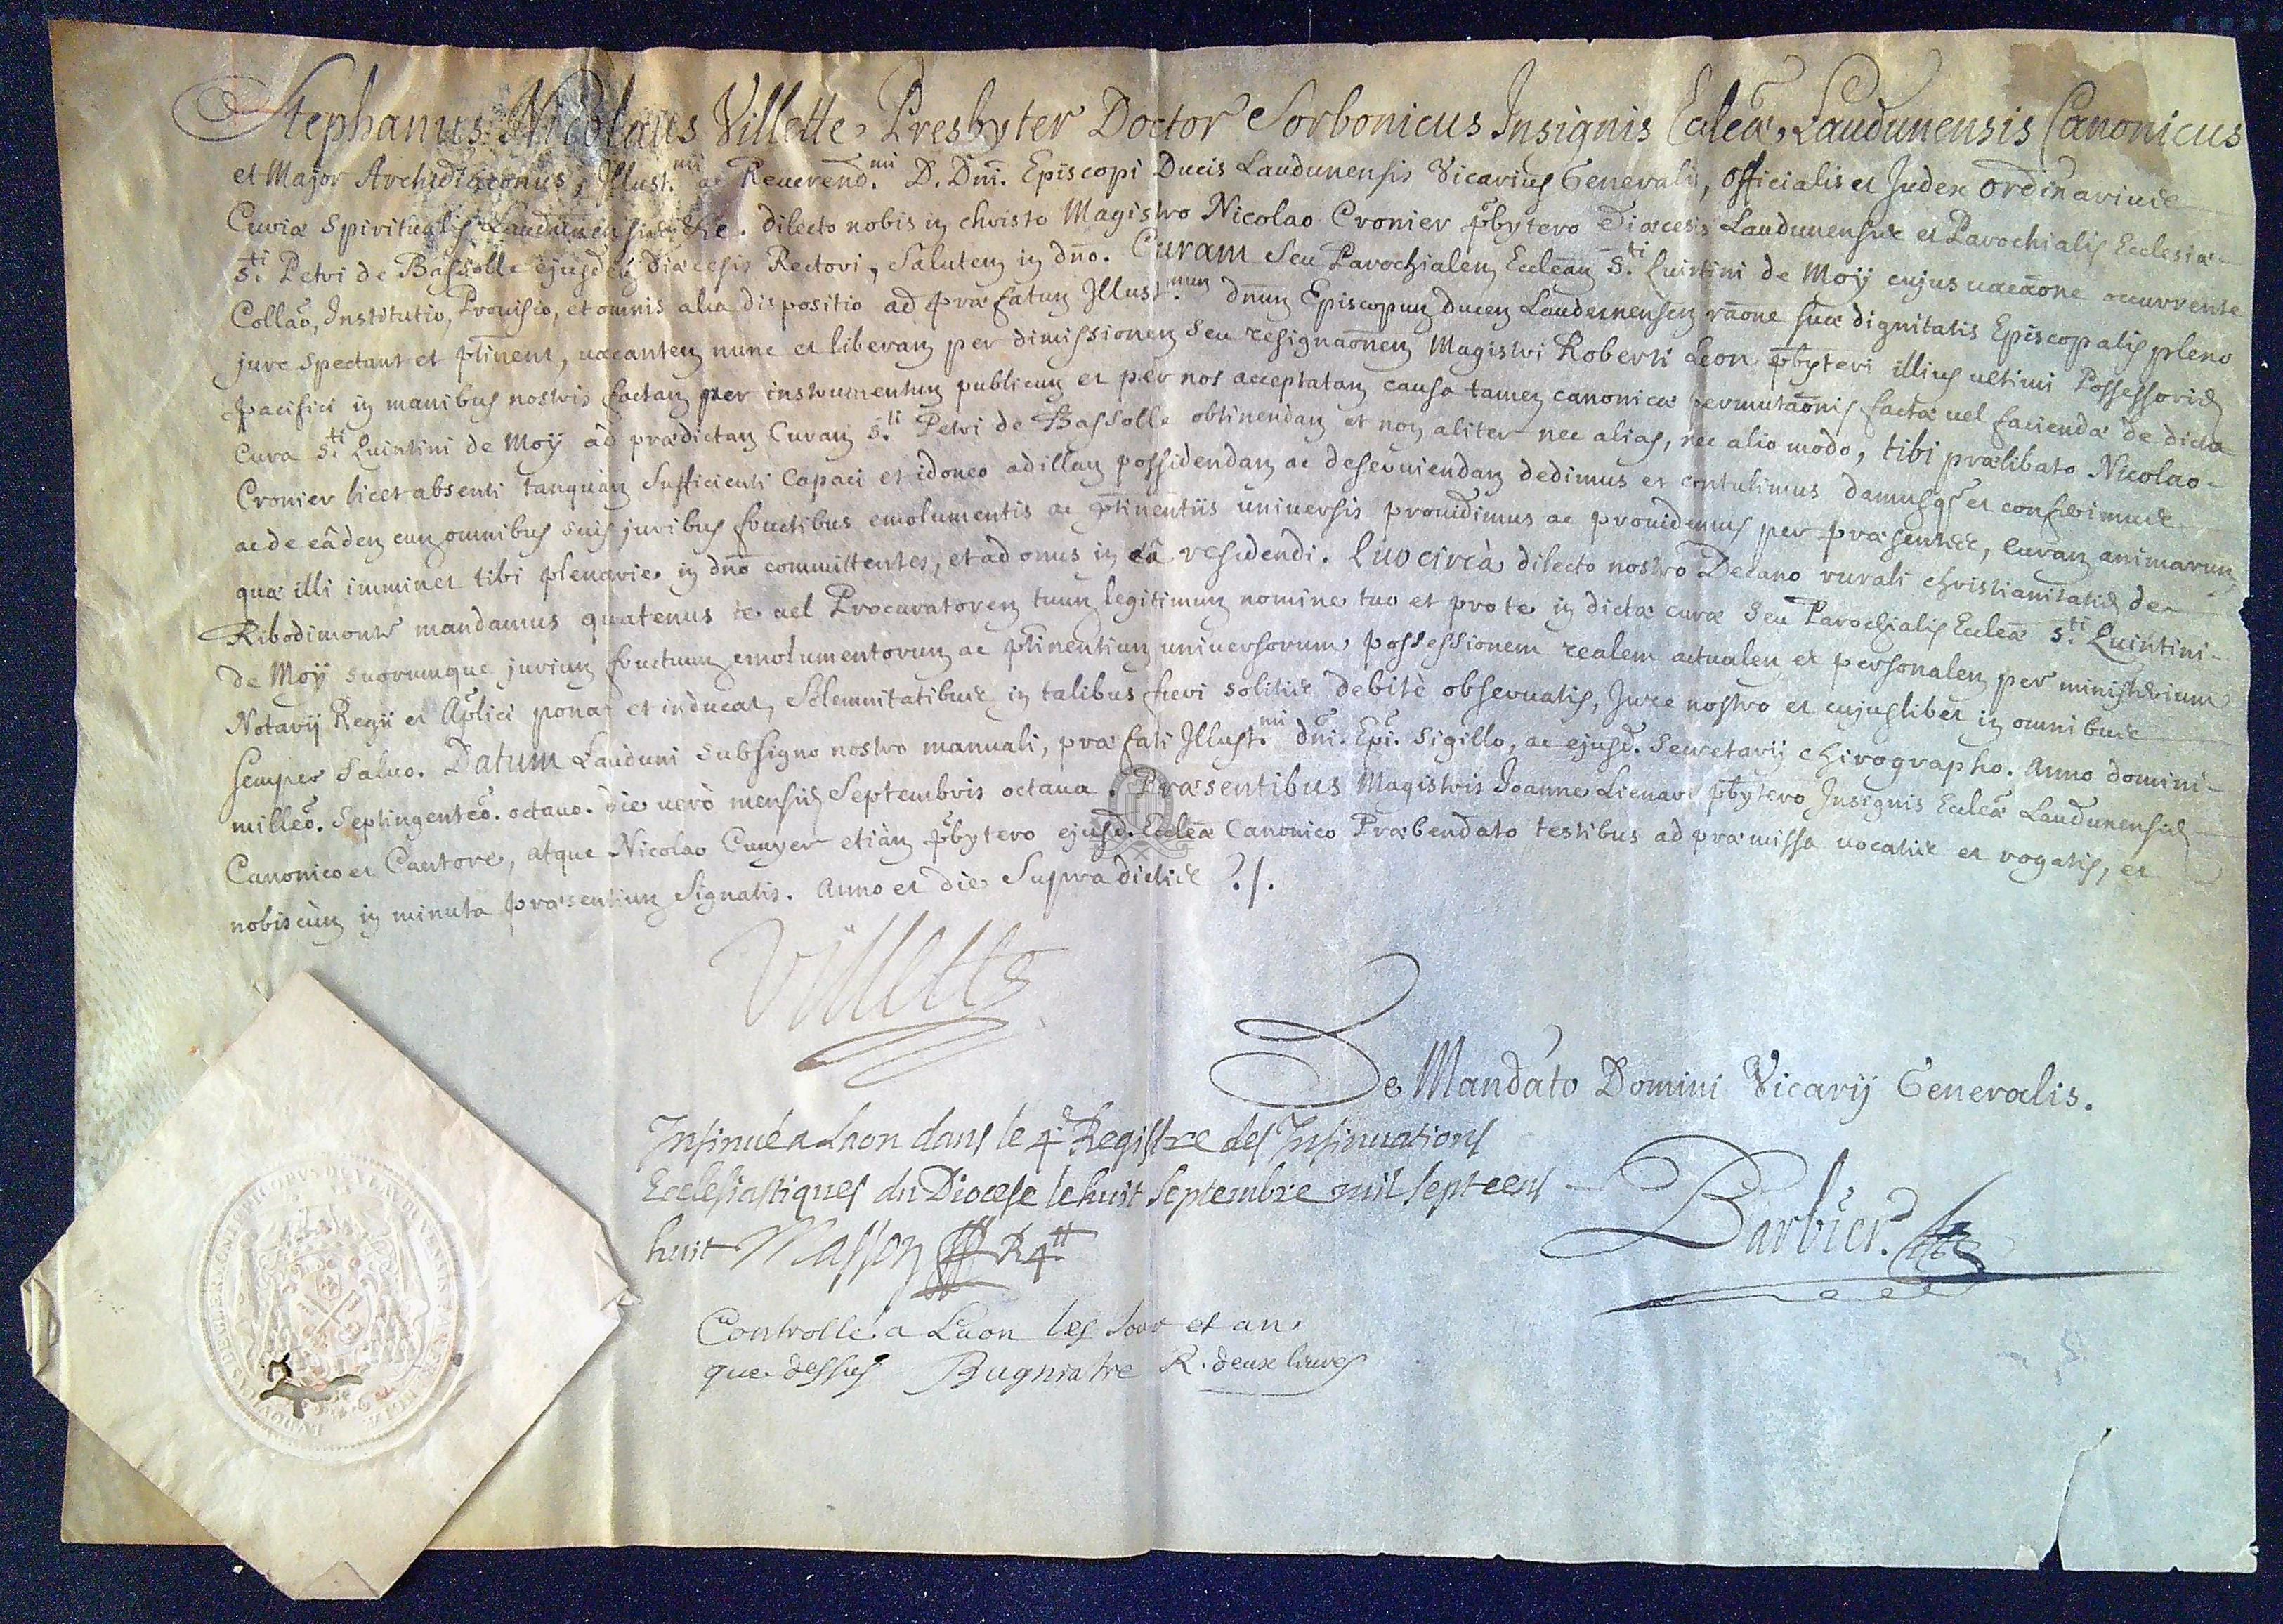 Stephanus Nicolaus Villette, Presbyter Doctor Sorbonicus Insignis Ecleæ, Laudunensis Canonicus
et Major Archidiaconus, Illust.mi ac Reverend.mi D. Dni. Episcopi Ducis Laudunensis Vicarius Generalis, officialis et Judex ordinarius
Curiæ Spiritualis Laudunensis &c. dilecto nobis in christo Magistro Nicolao Cronier pbytero Diœcesis Laudunensis et Parochialis Ecclesiæ
S.ti Petri de Bassolle ejusdem diœcesis Rectori, Salutem in dno. Curam Seu Parochialem Eccleam S.ti Quintini de Moÿ cujus vacaone occurrente
Collao, Institutio, Provisio, et omnis alia dispositio ad præfatum Illust.mum dnum Episcopum ducem Laudunensem raone suæ dignitatis Episcopalis pleno
jure spectant et ptinent, vacantem nunc et liberam per dimissionem seu resignaonem Magistri Roberti Leon pbyteri illius ultimi Possessoris
pacifici in manibus nostris factam per instrumentum publicum et per nos acceptatam causa tamen canonicæ permutaonis factæ vel faciendæ de dicta
Cura S.ti Quintini de Moÿ ad prædictam Curam S.ti Petri de Bassolle obtinendam et non aliter nec alias, nec alio modo, tibi prælibato Nicolao
Cronier licet absenti tanquam Sufficienti Capaci et idoneo ad illam possidendam ac deserviendam dedimus et contulimus damusq et conferimus
ac de eâdem cum omnibus suis juribus fructibus emolumentis ac ptinentiis universis providimus ac providemus per præsentes, curam animarum
quæ illi imminet tibi plenarie in dno committentes, et ad onus in eâ residendi. Quocircà dilecto nostro Decano rurali christianitatis de
Ribodimonte mandamus quatenus te vel Procuratorem tuum legitimum nomine tuo et pro te in dictæ curæ Seu Parochialis Ecleæ S.ti Quintini
de Moÿ suorumque jurium fructuum emolumentorum ac ptinentium universorum, possessionem realem actualem et personalem per ministerium
Notarij Regii et Aplici ponat et inducat, Solemnitatibus in talibus fieri solitis debitè observatis, Jure nostro et cujuslibet in omnibus
semper salvo. Datum Lauduni sub signo nostro manuali, præfati Illust.mi dni. Epi. Sigillo, ac ejusd. Secretarij chirographo. Anno domini
milleo. Septingenteo. octavo. die verò mensis Septembris octava. Præsentibus Magistris Joanne Lienart pbytero Insignis Ecleæ Laudunensis
Canonico et Cantore, atque Nicolao Cunyer etiàm pbytero ejusd. Ecleæ Canonico Præbendato testibus ad præmissa vocatis et rogatis, et
nobiscùm in minuta præsentium Signatis. Anno et die Supradictis ./.
Villette
De Mandato Domini Vicarij Generalis.
Insinué a Laon dans le 4e Registre des Insinuations
Ecclesiastiques du Diocese le huit Septembre mil sept cens
huit Masson R 4tt
Barbier.
Controllé a Laon les Jour et an
que dessus Bugniatre R. deux livres